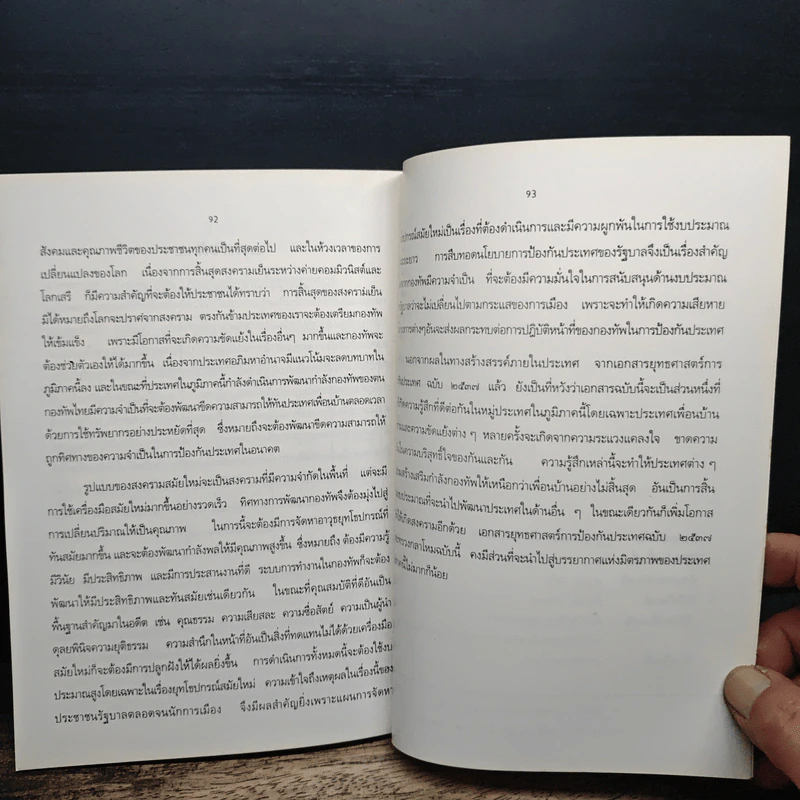 92
สังคมและคุณภาพชีวิตของประชาชนทุกคนเป็นที่สุดต่อไป และในห้วงเวลาของการ
เปลี่ยนแปลงของโลก เนื่องจากการสิ้นสุดสงครามเย็นระหว่างค่ายคอมมิวนิสต์และ
โลกเสรี ก็มีความสำคัญที่จะต้องให้ประชาชนได้ทราบว่า การสิ้นสุดของสงครามเย็น
มิได้หมายถึงโลกจะปราศจากสงคราม ตรงกันข้ามประเทศของเราจะต้องเตรียมกองทัพ
ให้เข้มแข็ง เพราะมีโอกาสที่จะเกิดความขัดแย้งในเรื่องอื่นๆ มากขึ้นและกองทัพจะ
ต้องช่วยตัวเองให้ได้มากขึ้น เนื่องจากประเทศอภิมหาอำนาจมีแนวโน้มจะลดบทบาทใน
ภูมิภาคนี้ลง และในขณะที่ประเทศในภูมิภาคนี้กำลังดำเนินการพัฒนากำลังกองทัพของตน
กองทัพไทยมีความจำเป็นที่จะต้องพัฒนาขีดความสามารถให้ทันประเทศเพื่อนบ้านตลอดเวลา
ด้วยการใช้ทรัพยากรอย่างประหยัดที่สุด ซึ่งหมายถึงจะต้องพัฒนาขีดความสามารถให้
ถูกทิศทางของความจำเป็นในการป้องกันประเทศในอนาคต
รูปแบบของสงครามสมัยใหม่จะเป็นสงครามที่มีความจำกัดในพื้นที่ แต่จะมี
การใช้เครื่องมือสมัยใหม่มากขึ้นอย่างรวดเร็ว ทิศทางการพัฒนากองทัพจึงต้องมุ่งไปสู่
การเปลี่ยนปริมาณให้เป็นคุณภาพ ในการนี้จะต้องมีการจัดหาอาวุธยุทโธปกรณ์ที่
ทันสมัยมากขึ้น และจะต้องพัฒนากำลังพลให้มีคุณภาพสูงขึ้น ซึ่งหมายถึง ต้องมีความรู้
มีวินัย มีประสิทธิภาพ และมีการประสานงานที่ดี ระบบการทำงานในกองทัพก็จะต้อง
พัฒนาให้มีประสิทธิภาพและทันสมัยเช่นเดียวกัน ในขณะที่คุณสมบัติที่ดีอันเป็น
พื้นฐานสำคัญมาในอดีต เช่น คุณธรรม ความเสียสละ ความซื่อสัตย์ ความเป็นผู้นำ
ดุลยพินิจความยุติธรรม ความสำนึกในหน้าที่อันเป็นสิ่งที่ทดแทนไม่ได้ด้วยเครื่องมือ
สมัยใหม่ก็จะต้องมีการปลูกฝังให้ได้ผลยิ่งขึ้น การดำเนินการทั้งหมดนี้จะต้องใช้งบ
ประมาณสูงโดยเฉพาะในเรื่องยุทโธปกรณ์สมัยใหม่ ความเข้าใจถึงเหตุผลในเรื่องนี้ของ
ประชาชนรัฐบาลตลอดจนนักการเมือง จึงมีผลสำคัญยิ่งเพราะแผนการจัดหา
93
ปกรณ์สมัยใหม่เป็นเรื่องที่ต้องดำเนินการและมีความผูกพันในการใช้งบประมาณ
ระยะยาว การสืบทอดนโยบายการป้องกันประเทศของรัฐบาลจึงเป็นเรื่องสำคัญ
จากกองทัพมีความจำเป็น ที่จะต้องมีความมั่นใจในการสนับสนุนด้านงบประมาณ
รัฐบาลว่าจะไม่เปลี่ยนไปตามกระแสของการเมือง เพราะจะทำให้เกิดความเสียหาย
การต่างๆอันจะส่งผลกระทบต่อการปฏิบัติหน้าที่ของกองทัพในการป้องกันประเทศ
นอกจากผลในทางสร้างสรรค์ภายในประเทศ จากเอกสารยุทธศาสตร์การ
ประเทศ ฉบับ ๒๕๓๗ แล้ว ยังเป็นที่หวังว่าเอกสารฉบับนี้จะเป็นส่วนหนึ่งที่
ความรู้สึกที่ดีต่อกันในหมู่ประเทศในภูมิภาคนี้โดยเฉพาะประเทศเพื่อนบ้าน
และความขัดแย้งต่าง ๆ หลายครั้งจะเกิดจากความระแวงแคลงใจ ขาดความ
ในความบริสุทธิ์ใจของกันและกัน ความรู้สึกเหล่านี้จะทำให้ประเทศต่าง ๆ
สร้างเสริมกำลังกองทัพให้เหนือกว่าเพื่อนบ้านอย่างไม่สิ้นสุด อันเป็นการสิ้น
งบประมาณที่จะนำไปพัฒนาประเทศในด้านอื่น ๆ ในขณะเดียวกันก็เพิ่มโอกาส
ให้เกิดสงครามอีกด้วย เอกสารยุทธศาสตร์การป้องกันประเทศฉบับ ๒๕๓๗
กระทรวงกลาโหมฉบับนี้ คงมีส่วนที่จะนำไปสู่บรรยากาศแห่งมิตรภาพของประเทศ
ไม่มากก็น้อย